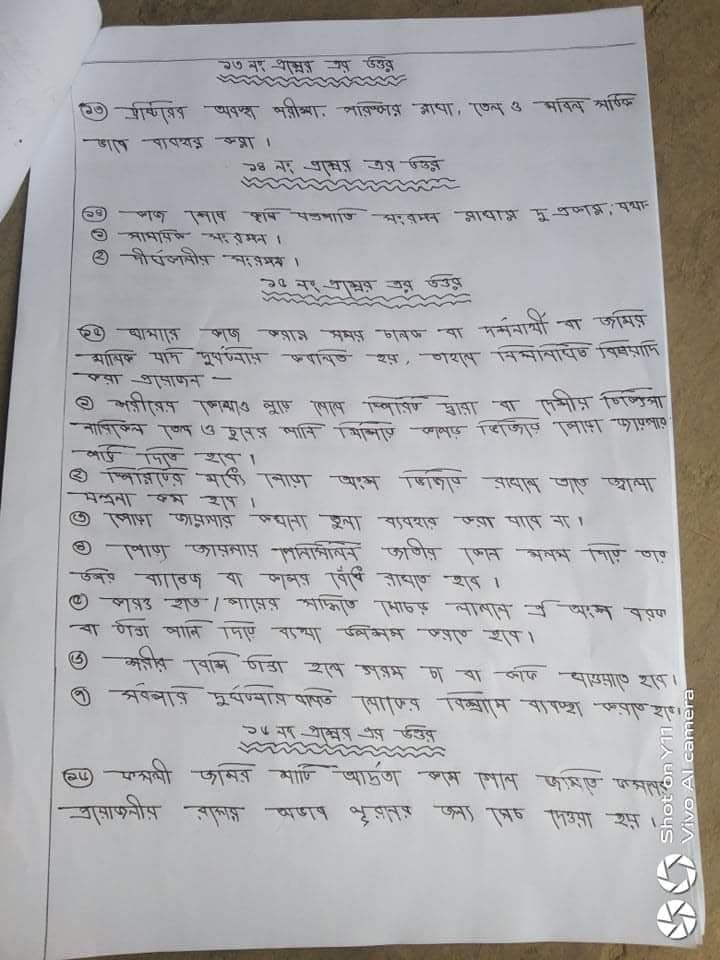 ১৩ নং প্রশ্নের এর উত্তর
১৩ ট্রাক্টরের অবস্থা পরীক্ষা, পরিষ্কার রাখা, তেল ও মবিল সঠিক
ভাবে ব্যবহার করা ।
১৪ নং প্রশ্নের এর উত্তর
১৪ কাজ শেষে কৃষি যন্ত্রপাতি সংরক্ষন রাখার দু প্রকার; যথা-
১ সাময়িক সংরক্ষন ।
২ দীর্ঘকালীন সংরক্ষন ।
১৫ নং প্রশ্নের এর উত্তর
১৫ খামারে কাজ করার সময় চালক বা দর্শনার্থী বা জমির
মালিক যদি দুর্ঘটনার কবলিত হয়, তাহলে নিম্নলিখিত বিষয়াদি
করা প্রয়োজন —
১ শরীরের কোথাও পুড়ে গেলে স্পিরিট দ্বারা বা দেশীয় চিকিৎসা
নারিকেল তেল ও চুনের পানি মিশিয়ে কাপড় ভিজিয়ে পোড়া জায়গায়
পট্টি দিতে হবে ।
২ স্পিরিটের মধ্যে পোড়া অংশ ভিজিয়ে রাখলে তাতে জ্বালা
যন্ত্রনা কম হবে ।
৩ পোড়া জায়গায় কখনো তুলা ব্যবহার করা যাবে না ।
৪ পোড়া জায়গায় পেনিসিলিন জাতীয় কোন মলম দিয়ে তার
উপর ব্যান্ডেজ বা কাপড় বেঁধে রাখতে হবে ।
৫ কারও হাত / পায়ের সন্ধিতে মোচড় লাগলে ঐ অংশে বরফ
বা ঠান্ডা পানি দিয়ে ব্যথা উপশম করতে হবে ।
৬ শরীর বেশি ঠান্ডা হলে গরম চা বা কফি খাওয়াতে হবে ।
৭ সর্বপরি দুর্ঘটনায় পতিত লোকের বিশ্রামে ব্যবস্থা করতে হবে ।
১৬ নং প্রশ্নের এর উত্তর
১৬ ফসলী জমির মাটি আর্দ্রতা কমে গেলে জমিতে ফসলের
প্রয়োজনীয় রসের অভাব পূরনের জন্য সেচ দেওয়া হয় ।
Shot on Y11
Vivo AI camera